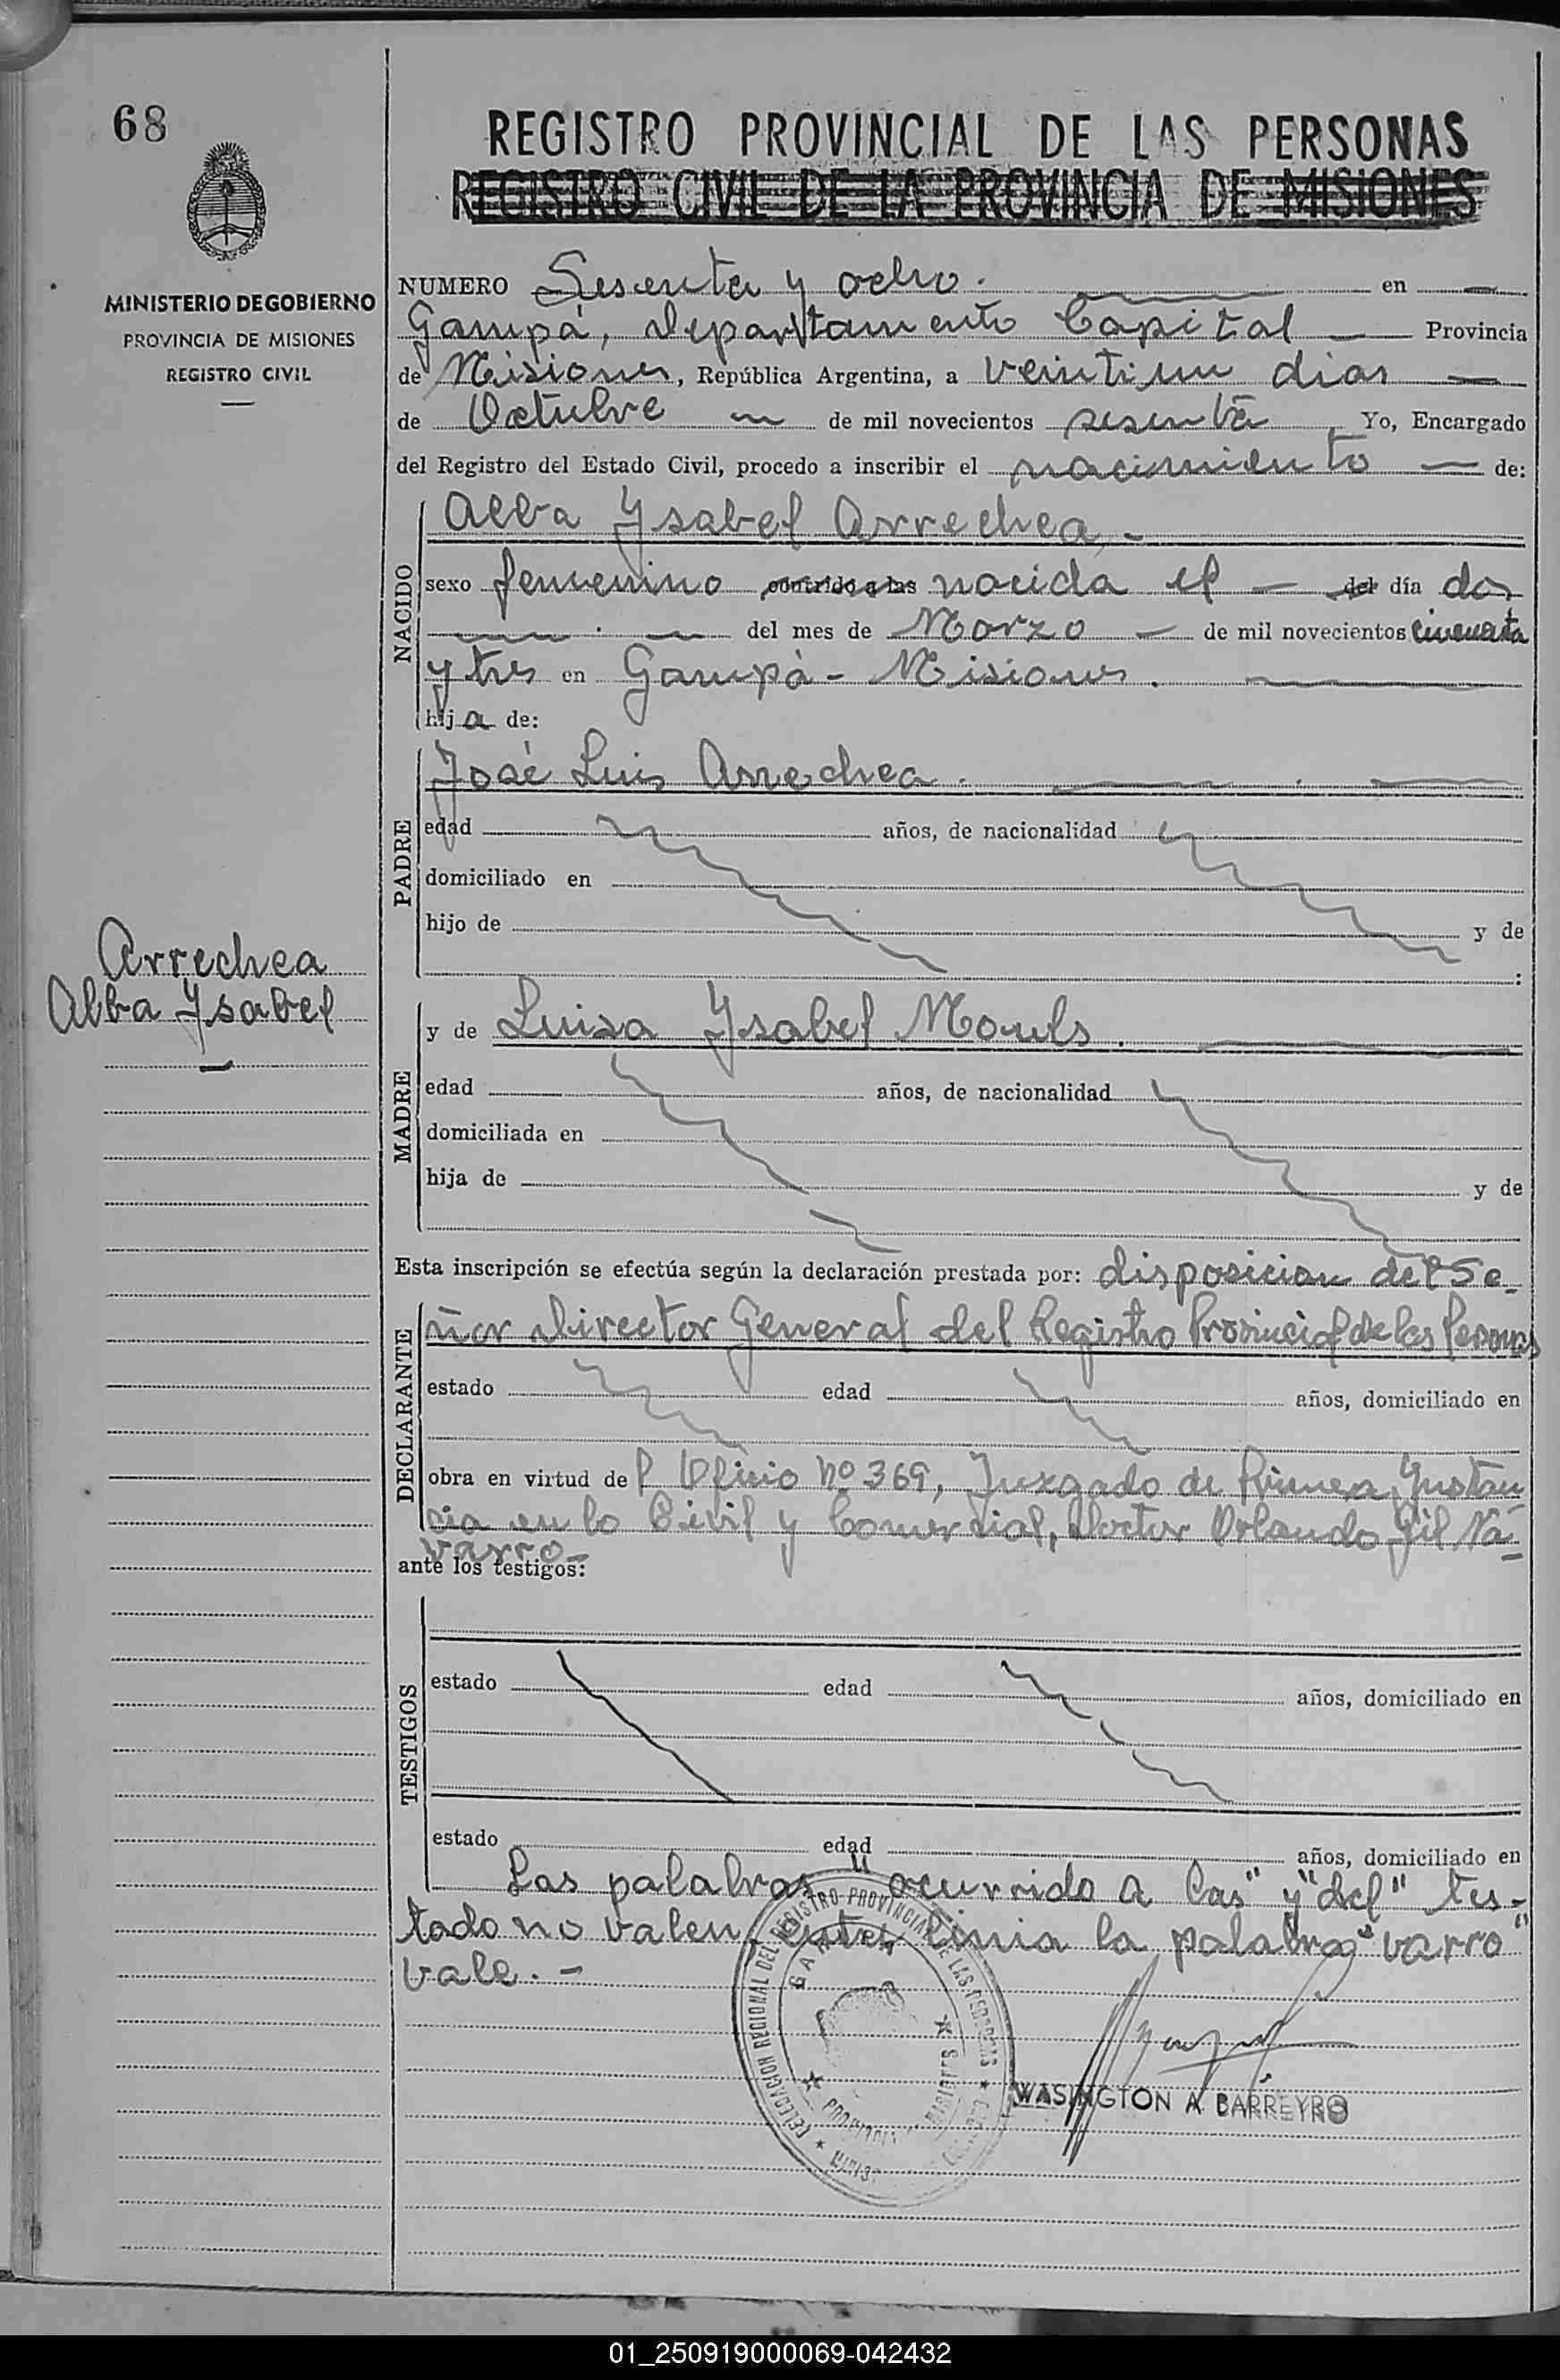 68
REGISTRO PROVINCIAL DE LAS PERSONAS
REGISTRO CIVIL DE LA PROVINCIA DE MISIONES
MINISTERIO DE GOBIERNO
PROVINCIA DE MISIONES
REGISTRO CIVIL
NUMERO Sesenta y ocho. en
Garupá, departamento Capital Provincia
de Misiones, República Argentina, a veintiun dias
de Octubre de mil novecientos sesenta Yo, Encargado
del Registro del Estado Civil, procedo a inscribir el nacimiento de:
NACIDO
Alba Ysabel Arrechea.-
sexo femenino ocurrido a las nacida el del día dos
del mes de Marzo de mil novecientos cincuenta
y tres en Garupá - Misiones.
hija de:
PADRE
José Luis Arrechea.
edad años, de nacionalidad
domiciliado en
hijo de y de
:
Arrechea
Alba Ysabel
MADRE
y de Luisa Ysabel
edad años, de nacionalidad
domiciliada en
hija de y de
Esta inscripción se efectúa según la declaración prestada por: disposicion del Se-
DECLARANTE
ñor Director General del Registro Provincial de las Personas
estado edad años, domiciliado en
obra en virtud del Oficio Nº 369, Juzgado de Primera Ynstan-
cia en lo Civil y Comercial, Doctor Orlando Gil Na-
varro-
ante los testigos:
TESTIGOS
estado edad años, domiciliado en
estado edad años, domiciliado en
Las palabras "ocurrido a las" y "del" tes-
tado no valen, entre linia la palabra "varro"
vale.-
DELEGACION REGIONAL DEL REGISTRO PROVINCIAL DE LAS PERSONAS
WASINGTON A BARREYRO
01_250919000069-042432